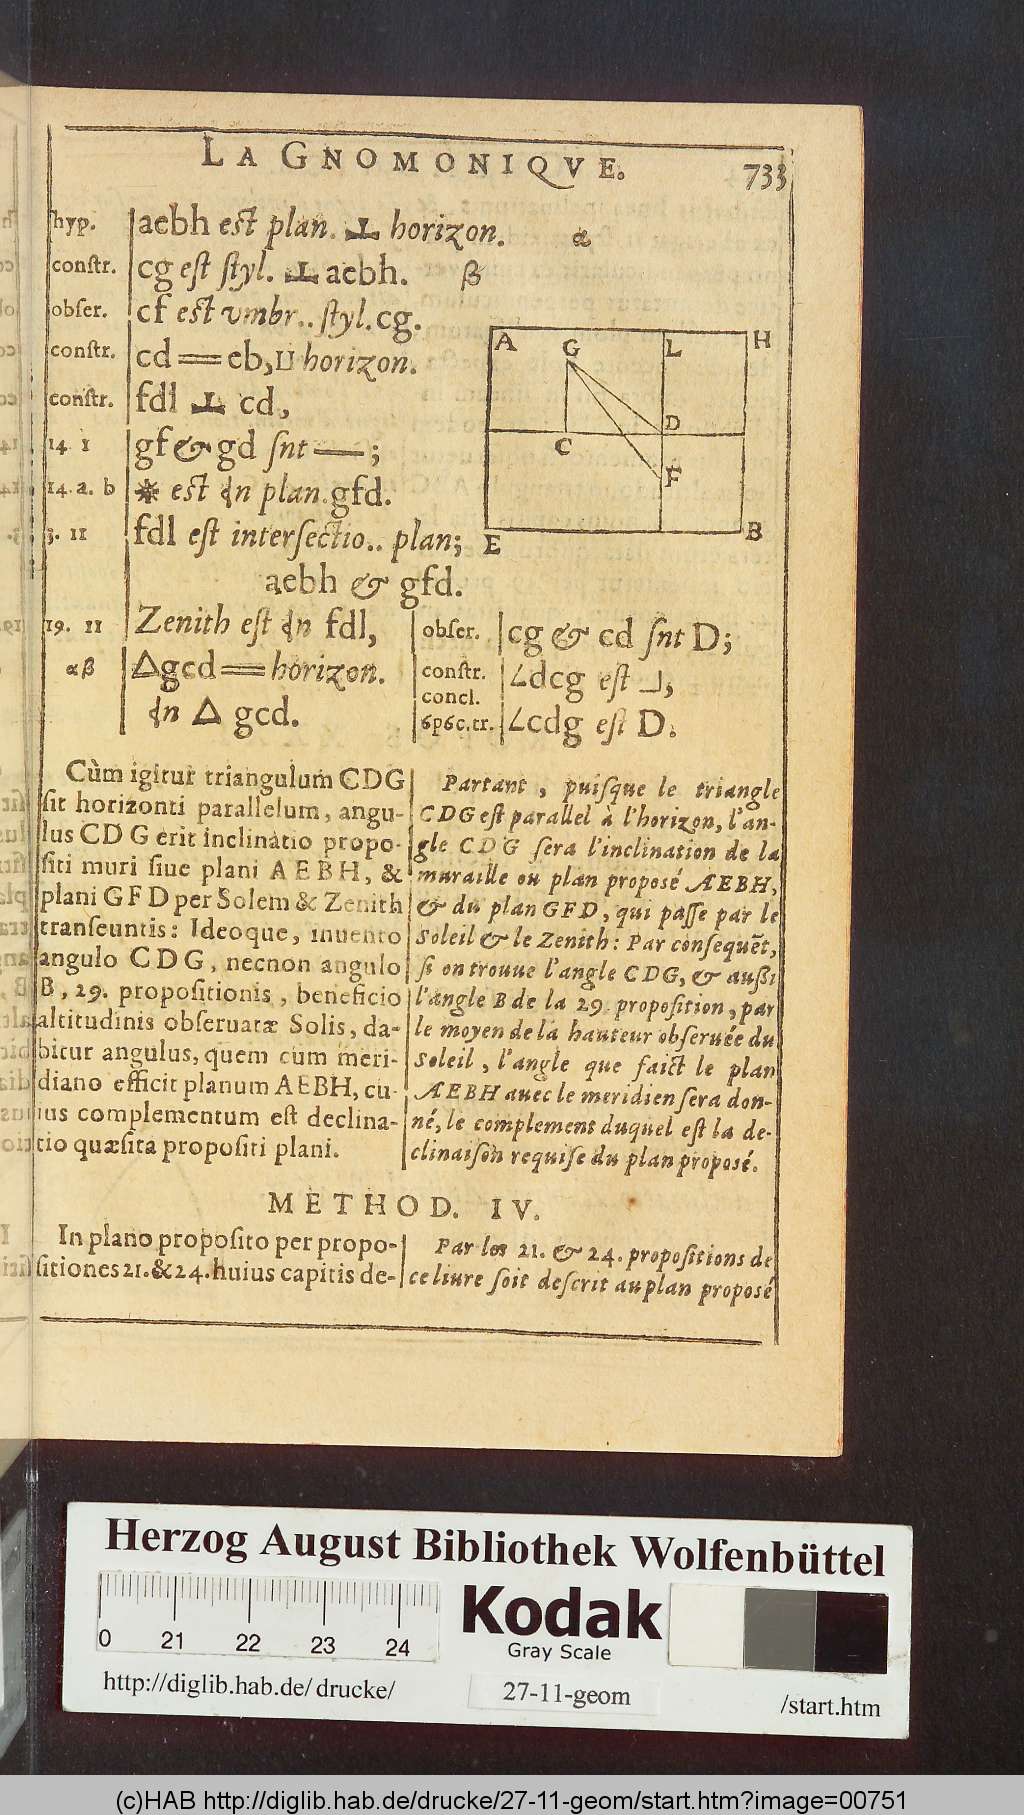 LA GNOMONIQVE. 733
hyp. aebh eſt plan. ⊥ horizon. α
conſtr. cg eſt ſtyl. ⊥ aebh. β
obſer. cf eſt vmbr.. ſtyl. cg.
conſtr. cd == eb, ⊔ horizon.
conſtr. fdl ⊥ cd,
14. 1 gf & gd ſnt —;
14. a. b ✵ eſt ɖn plan. gfd.
3. 11 fdl eſt interſectio.. plan;
aebh & gfd.
A G L H
C D
F
E B
19. 11 Zenith eſt ɖn fdl,
αβ △gcd == horizon.
ɖn △ gcd.
obſer. cg & cd ſnt D;
conſtr. ∠dcg eſt ⅃,
concl.
6p6c.tr. ∠cdg eſt D.
Cùm igitur triangulum CDG
ſit horizonti parallelum, angu-
lus CDG erit inclinatio propo-
ſiti muri ſiue plani AEBH, &
plani GFD per Solem & Zenith
tranſeuntis: Ideoque, inuento
angulo CDG, necnon angulo
B, 29. propoſitionis, beneficio
altitudinis obſeruatæ Solis, da-
bitur angulus, quem cum meri-
diano efficit planum AEBH, cu-
ius complementum eſt declina-
tio quæſita propoſiti plani.
Partant, puiſque le triangle
CDG eſt parallel à l'horizon, l'an-
gle CDG ſera l'inclination de la
muraille ou plan propoſé AEBH,
& du plan GFD, qui paſſe par le
Soleil & le Zenith: Par conſequẽt,
ſi on trouue l'angle CDG, & auſſi
l'angle B de la 29. propoſition, par
le moyen de la hauteur obſeruée du
Soleil, l'angle que faict le plan
AEBH auec le meridien ſera don-
né, le complement duquel eſt la de-
clinaiſon requiſe du plan propoſé.
METHOD. IV.
In plano propoſito per propo-
ſitiones 21. & 24. huius capitis de-
Par les 21. & 24. propoſitions de
ce liure ſoit deſcrit au plan propoſé
Herzog August Bibliothek Wolfenbüttel
0 21 22 23 24
Kodak
Gray Scale
http://diglib.hab.de/ drucke/ 27-11-geom /start.htm
(c)HAB http://diglib.hab.de/drucke/27-11-geom/start.htm?image=00751